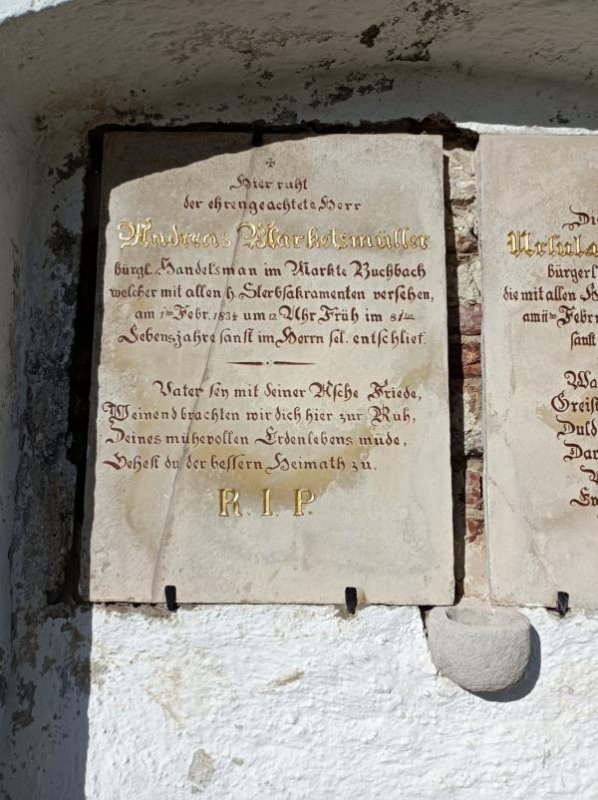 Hier ruht
der ehrengeachtete Herr
Andreas Markelsmüller
bürgl. Handelsman im Markte Buchbach
welcher mit allen h. Sterbsakramenten versehen,
am 1ten Febr. 1834 um 12 Uhr Früh im 81ten
Lebensjahre sanft im Herrn sel. entschlief.
Vater sey mit deiner Asche Friede,
Weinend brachten wir dich hier zur Ruh,
Deines mühevollen Erdenlebens müde,
Gehest du der bessern Heimath zu.
R. I. P.
Ursula
bürgerl
die mit allen
am 11ten Febr
sanft
Greis
Duld